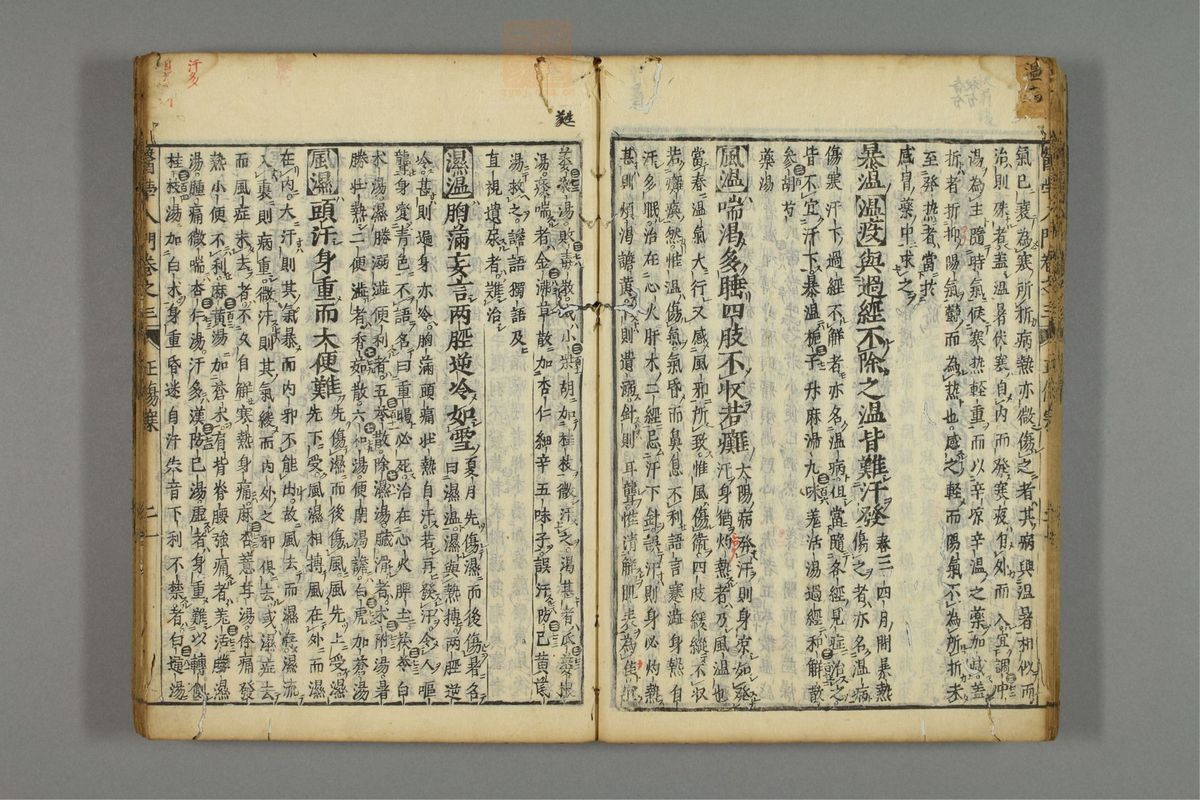 氣已衰為寒所折病熱亦微傷之者其病與溫暑相似而
治則殊者蓋溫暑伏寒自內而發寒夜自外而入宜調中
湯為主隨時氣候寒熱輕重而以辛凉辛溫之藥加減蓋
折者折抑陽氣鬱而為热也感之輕而陽氣不為所折未
至發热者當於
感冒藥中求之
暴溫
溫疫與過經不除之溫皆難汗發
春三四月間暴熱
傷之者亦名溫病
傷寒汗下過經不解者亦名溫病但當隨各經見症治之
皆不宜汗下暴溫梔子升麻湯九味羗活湯過經和解散
參胡芍
藥湯
風溫
喘渴多睡四肢不收若癱
太陽病發汗則身凉如發
汗身猶灼熱者乃風溫也
當春溫氣大行又感風邪所致惟風傷衛四肢緩縱不收
若癱瘓然惟溫傷氣氣昏而鼻息不利語言蹇澁身熱自
汗多眠治在心火肝木二經忌汗下針誤汗則身必灼熱
甚則煩渴譫黃下則遺溺針則耳聾惟清解肌表為佳
湯敗毒散小柴胡加桂枝微汗之渴甚者
湯痰喘者金沸草散加杏仁細辛五味子誤汗防已黃芪
湯救之譫語獨語及
直視遺尿者難治
濕溫
胸滿妄言兩脛逆冷如雪
夏月先傷濕而後傷暑名
曰濕溫濕與熱搏兩脛逆
冷甚則遍身亦冷胸滿頭痛壮熱自汗若再發汗令人嘔
聾身變青色不語名曰重暍必死治在心火脾土苓白
木湯濕勝溺澁便利者五苓散除濕湯臟滑者木附湯暑
勝壮熱二便澁者香茹散六一湯便閉渴譫者白虎加蒼湯
風濕
頭汗身重而大便難
先傷濕而後傷風風先上受
先下受風濕相搏風在外而濕
在內大汗則其氣暴而內邪不能出故風去而濕存濕流
入裏則病重微汗則其氣緩而內外之邪俱去或濕症去
而風症未去者不久自解寒熱身痛麻杏薏苡湯体痛發
熱小便不利麻黃湯加蒼朮有背脊腰強痛者羗活勝濕
湯腫痛微喘杏仁湯汗多漢防已湯虛者身重難以轉側
桂枝湯加白木身重昏迷自汗失音下利不禁者白通湯
醫學入門卷之三
正傷寒
二一
汗多